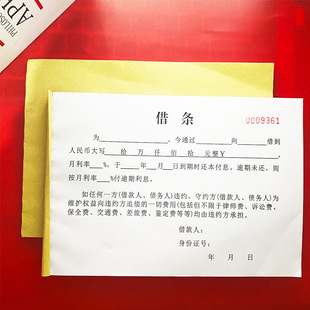 PHILOSOP
API
借条
0009361
为________,今通过______向______借到
人民币大写__拾__万__仟__佰__拾__元整￥______
月利率___%。于____年__月__日到期时还本付息。逾期未还,则
按月利率___%付逾期利息。
如任何一方(借款人、债务人)违约,守约方(借款人、债务人)为
维护权益向违约方追偿的一切费用(包括但不限于律师费、诉讼费、
保全费、交通费、差旅费、鉴定费等等)均由违约方承担。
借款人:
身份证号:
年 月 日